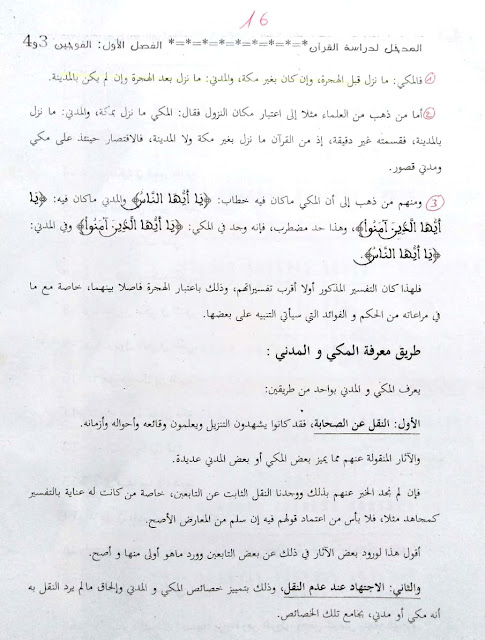 16
المدخل لدراسة القرآن*=*=*=*=*=*=*=*=*=* الفصل الأول: الفوجين 3و4
① فالمكي: ما نزل قبل الهجرة، وإن كان بغير مكة، والمدني: ما نزل بعد الهجرة وإن لم يكن بالمدينة.
② أما من ذهب من العلماء مثلا إلى اعتبار مكان النزول فقال: المكي ما نزل بمكة، والمدني: ما نزل
بالمدينة، فقسمته غير دقيقة، إذ من القرآن ما نزل بغير مكة ولا المدينة، فالاقتصار حينئذ على مكي و
ومدني قصور.
③ ومنهم من ذهب إلى أن المكي ماكان فيه خطاب: ﴿يَا أَيُّهَا النَّاسُ﴾ والمدني ماكان فيه: ﴿يَا
أَيُّهَا الَّذِينَ آمَنُواْ﴾، وهذا حد مضطرب، فإنه وجد في المكي: ﴿يَا أَيُّهَا الَّذِينَ آمَنُواْ﴾ وفي المدني:
﴿يَا أَيُّهَا النَّاسُ﴾.
فلهذا كان التفسير المذكور أولا أقرب تفسيراتهم، وذلك باعتبار الهجرة فاصلا بينهما، خاصة مع ما
في مراعاته من الحكم و الفوائد التي سيأتي التنبيه على بعضها.
طريق معرفة المكي و المدني :
يعرف المكي و المدني بواحد من طريقين:
الأول: النقل عن الصحابة، فقد كانوا يشهدون التنزيل ويعلمون وقائعه وأحواله وأزمانه.
والآثار المنقولة عنهم مما يميز بعض المكي أو بعض المدني عديدة.
فإن لم نجد الخبر عنهم بذلك ووجدنا النقل الثابت عن التابعين، خاصة من كانت له عناية بالتفسير
كمجاهد مثلا، فلا بأس من اعتماد قولهم فيه إن سلم من المعارض الأصح.
أقول هذا لورود بعض الآثار في ذلك عن بعض التابعين وورد ماهو أولى منها و أصح.
والثاني: الاجتهاد عند عدم النقل، وذلك بتمييز خصائص المكي و المدني وإلحاق مالم يرد النقل به
أنه مكي أو مدني، بجامع تلك الخصائص.